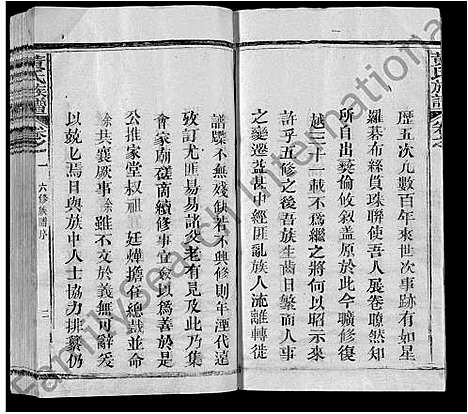 黃氏族譜
卷之一
歷五次凡數百年來世次事跡有如星
羅棊布絲貫珠聯使吾人展卷瞭然知
所自出彝倫攸敘蓋原於此今曠修復
越三十一載不爲繼之將何以昭示來
許乎五修之後吾族生齒日繁而人事
之變遷益甚中經匪亂族人流離轉徙
譜牒不無殘缺若不興修則年湮代遠
攷訂尤匪易易諸父老有見及此乃集
會家廟磋商續修事宜僉以爲善於是
公推家堂叔祖 廷燁擔任總裁並命
馀共襄厥事馀雖不文於義無可辭爰
以兢兢焉日與族中人士協力排纂仍
黃氏族譜
卷之一
六修族譜序
二
FamilySearch International